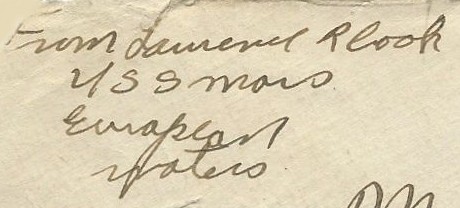 From Laurence R Cook
USS Mars
European
waters
M